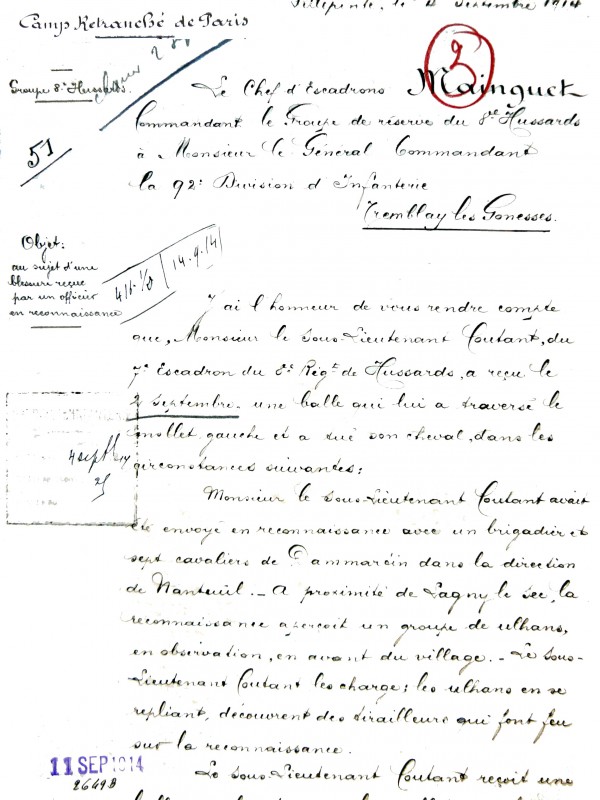 Camp Retranché de Paris
Villepinte, le 4 Septembre 1914
Groupe 8e Hussards
3
Le Chef d'Escadrons Mainguet
Commandant le Groupe de réserve du 8e Hussards
à Monsieur le Général Commandant
la 92e Division d'Infanterie
Tremblay les Gonesses.
51
Objet:
au sujet d'une
blessure reçue
par un officier
en reconnaissance
14.9.14
J'ai l'honneur de vous rendre compte
que, Monsieur le Sous-Lieutenant Coutant, du
7e Escadron du 8e Régt de Hussards, a reçu le
2 Septembre, une balle qui lui a traversé le
mollet gauche et a tué son cheval, dans les
circonstances suivantes:
4 sept 14
Monsieur le Sous-Lieutenant Coutant avait
été envoyé en reconnaissance avec un brigadier et
sept cavaliers de Dammartin dans la direction
de Nanteuil. - A proximité de Lagny le sec, la
reconnaissance aperçoit un groupe de ulhans,
en observation, en avant du village. - Le Sous-
Lieutenant Coutant les charge; les ulhans en se
repliant, découvrent des tirailleurs qui font feu
sur la reconnaissance.
11 SEP 1914
2649B
Le Sous-Lieutenant Coutant reçoit une